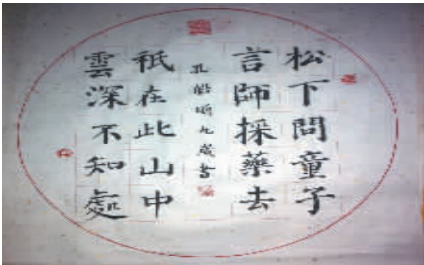 松下問童子
言師採藥去
孔九歲書
祇在此山中
雲深不知處